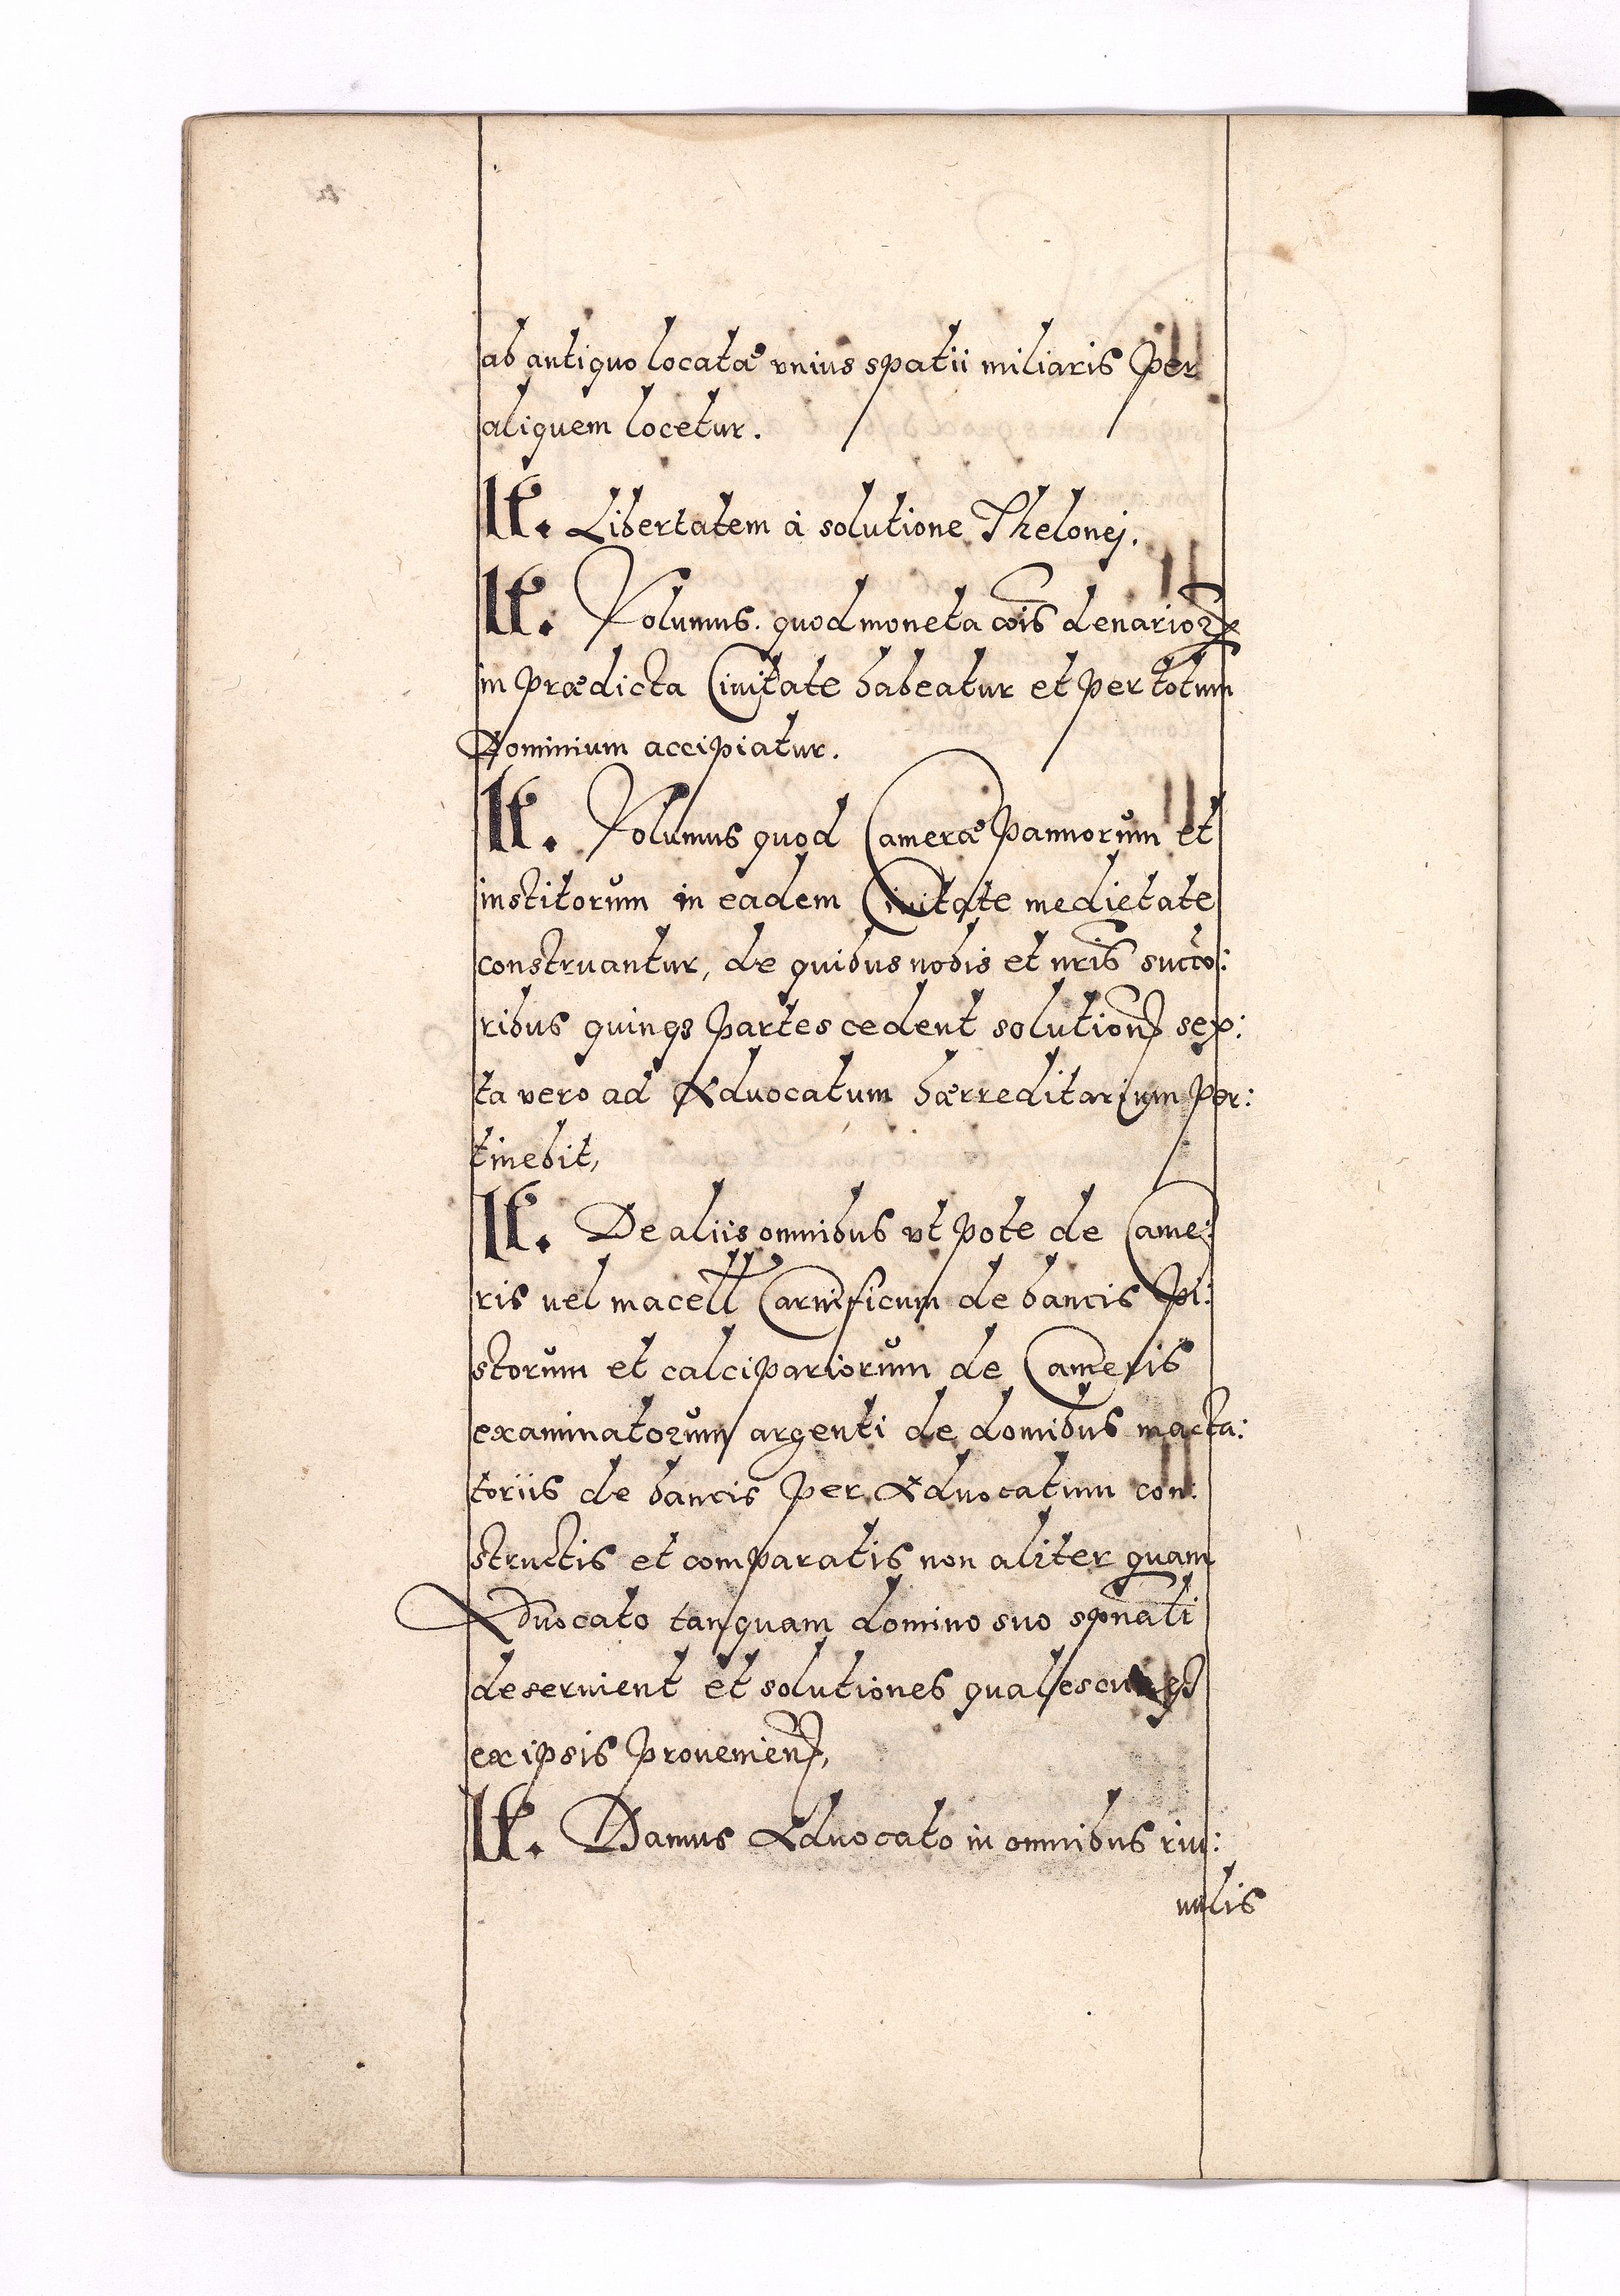 ab antiquo locatæ vnius spatii miliaris per
aliquem locetur.
It. Libertatem à solutione Thelonej.
It. Volumus. quod moneta cõis denarioꝝ
in prædicta Ciuitate habeatur et per totum
Dominium accipiatur.
It. Volumus quod Cameræ pannorum et
institorum in eadem Ciuitate medietate
construantur, de quibus nobis et nr̃is succo:
ribus quinqȝ partes cedent solutionꝭ sex:
ta vero ad Aduocatum hærreditarium per:
tinebit,
It. De aliis omnibus vt pote de Came:
ris uel macell Carnificum de bancis pi:
storum et calcipariorum de Cameris
examinatorum argenti de domibus macta:
toriis de bancis per Aduocatum con:
structis et comparatis non aliter quam
Aduocato tanquam domino suo spn̄ali
deseruient et solutiones qualescunqȝ
ex ipsis prouenienꝭ,
It. Damus Aduocato in omnibus riu:
ulis